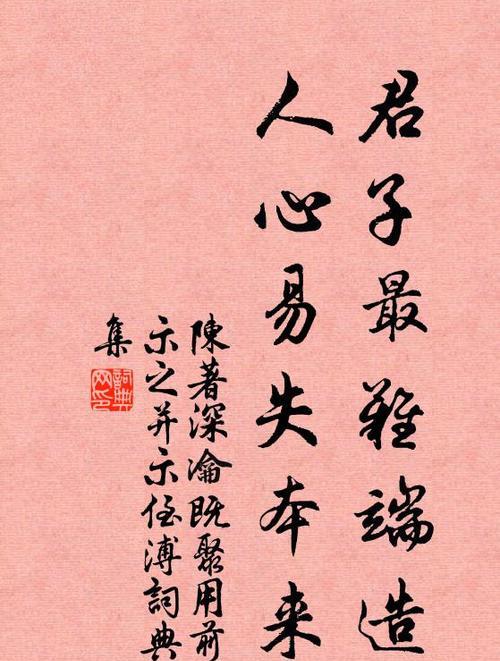 君子最難端造
人心易失本来
陳著深瀹既聚用前
示之并示侄溥詞典
集
詞典
网印